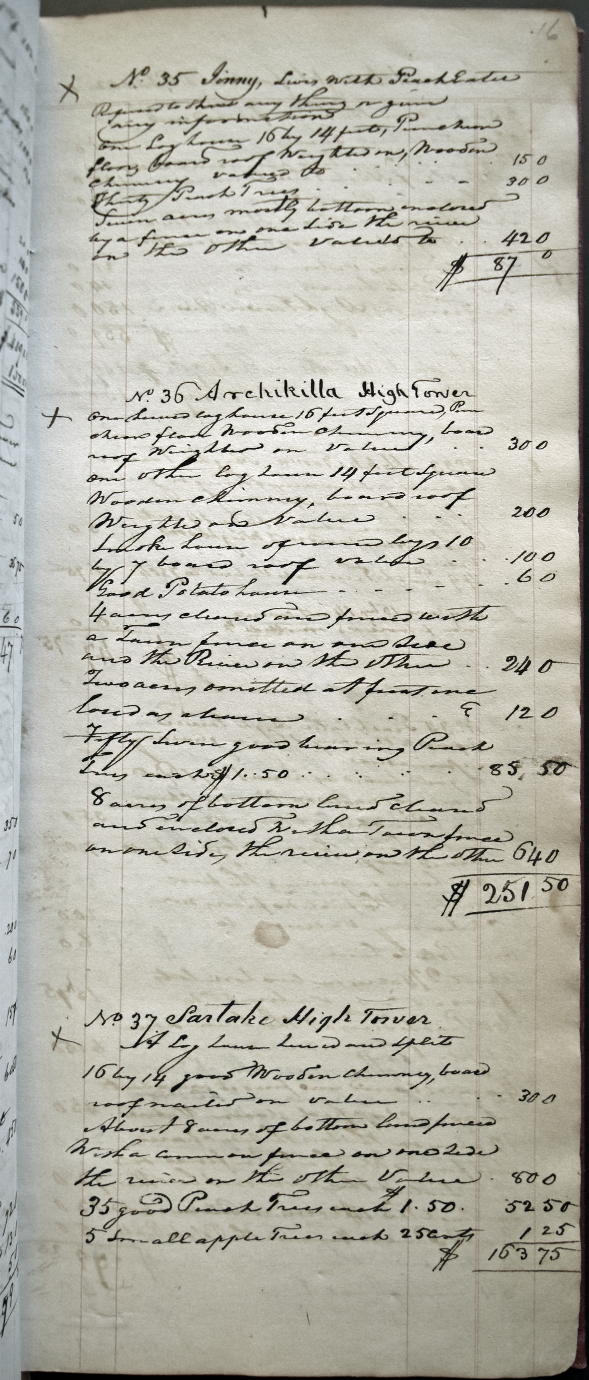 16
X No 35 Jinny, Lives with Peach Eater
Refuses to show any thing or give
any information
one Log house 16 by 14 feet, Puncheon
floor, board roof Weighted on, Wooden
Chimney valued to 15 0
Thirty Peach Trees 30 0
Seven acres mostly bottom enclosed
by a fence on one side the river
on the other valued to 42 0
$ 87 0
X No 36 Archikilla High Tower
One hewed log house 16 feet Square, Pun
cheon floor Wooden Chimney, board
roof Weighted on Value 30 0
one other log house 14 feet Square
Wooden chimney, board roof
Weighted on Value 20 0
Smoke house of round logs 10
by 7 board roof value 10 0
Good Potato house 6 0
4 acres cleared and fenced with
a Town fence on one Side
and the River on the other 24 0
Two acres omitted at first
12 0
Fifty Seven good bearing Peach
Trees each $1.50 85 50
8 acres of bottom land cleared
and enclosed With a Town fence
on one Side, the river on the other 64 0
$ 251 50
X No 37 Sartake High Tower
A Log house hewed and split
16 by 14 good Wooden Chimney, board
roof nailed on value 30 0
About 8 acres of bottom land fenced
With a common fence on one Side
the river on the other Value 80 0
35 good Peach Trees each $1.50. 52 50
5 Small apple Trees each 25 cents 1 25
$ 163 75